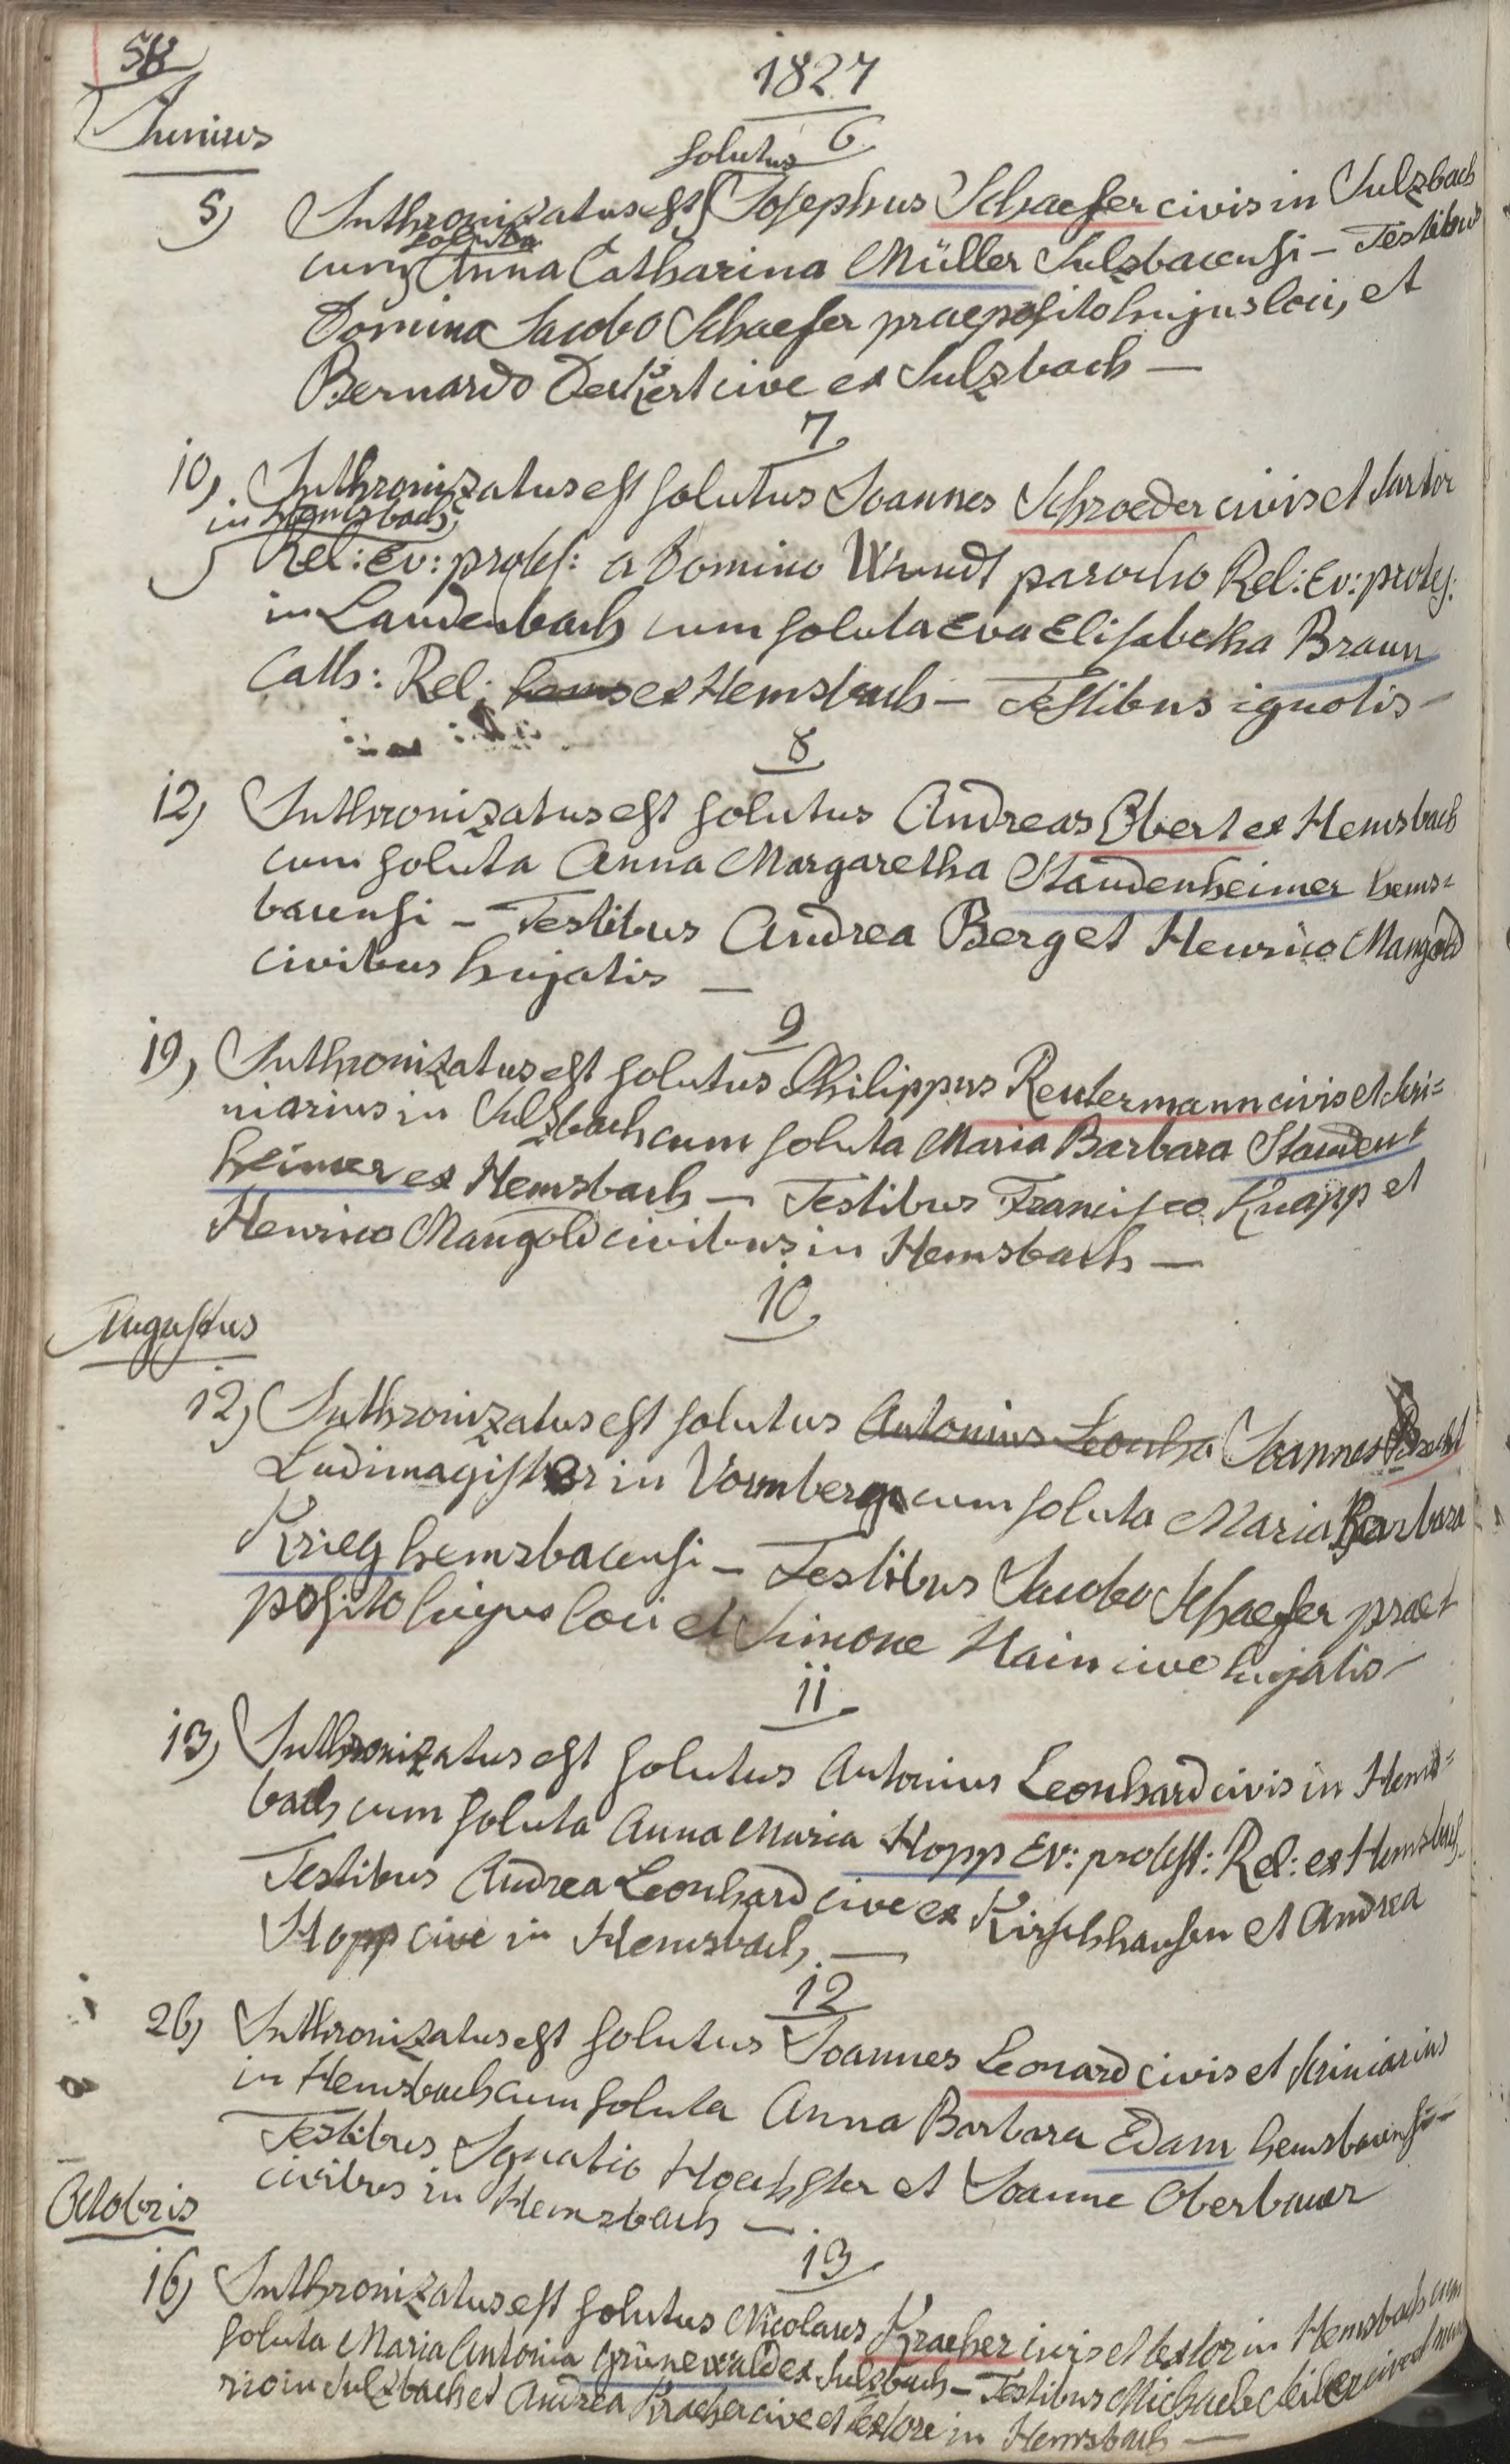 58
1827
Junius
6
solutus
5) Inthronizatus est Josephus Schaefer civis in Sulzbach
soluta
cum Anna Catharina Müller Sulzbacensi – Testibus
Domino Jacobo Schaefer praeposito hujus loci, et
Bernardo Deckert cive ex Sulzbach –
7
10, Inthronizatus est solutus Joannes Schroeder civis et sartor
in Hemsbach
Rel: Ev: prot: a Domino Wundt parocho Rel: Ev: prot:
in Laudenbach cum soluta Eva Elisabetha Braun
Cath: Rel: hems ex Hemsbach – Testibus ignotis –
8
12, Inthronizatus est solutus Andreas Obert ex Hemsbach
cum soluta Anna Margaretha Staudenheimer hems=
bacensi – Testibus Andrea Berg et Henrico Mangold
civibus hujatis –
9
19, Inthronizatus est solutus Philippus Reutermann civis et scri=
niarius in Sulzbach cum soluta Maria Barbara Stauden=
heimer ex Hemsbach – Testibus Francisco Knapp et
Henrico Mangold civibus in Hemsbach –
10
Augustus
12, Inthronizatus est solutus Antonius Leonha Joannes
Ludimagister in Vormberg cum soluta Maria Barbara
Krieg hemsbacensi – Testibus Jacobo Schaefer prae=
posito hujus loci et Simone Hain cive hujatis –
11
13, Inthronizatus est solutus Antonius Leonhard civis in Hems=
bach cum soluta Anna Maria Hopp Ev: protest: Rel: ex Hemsbach
Testibus Andrea Leonhard cive ex Kirschhausen et Andrea
Hopp cive in Hemsbach. –
12
26, Inthronizatus est solutus Joannes Leonard civis et scriniarius
in Hemsbach cum soluta Anna Barbara Edam hemsbacensi –
Testibus Ignatio Hoechster et Joanne Oberbauer
civibus in Hemsbach –
Octobris
13
16, Inthronizatus est solutus Nicolaus Kracher civis et textor in Hemsbach cum
soluta Maria Antonia Grünewald ex Sulzbach – Testibus Michaele Seiler cive et mu
rio in Sulzbach et Andrea Kracher cive et textore in Hemsbach –